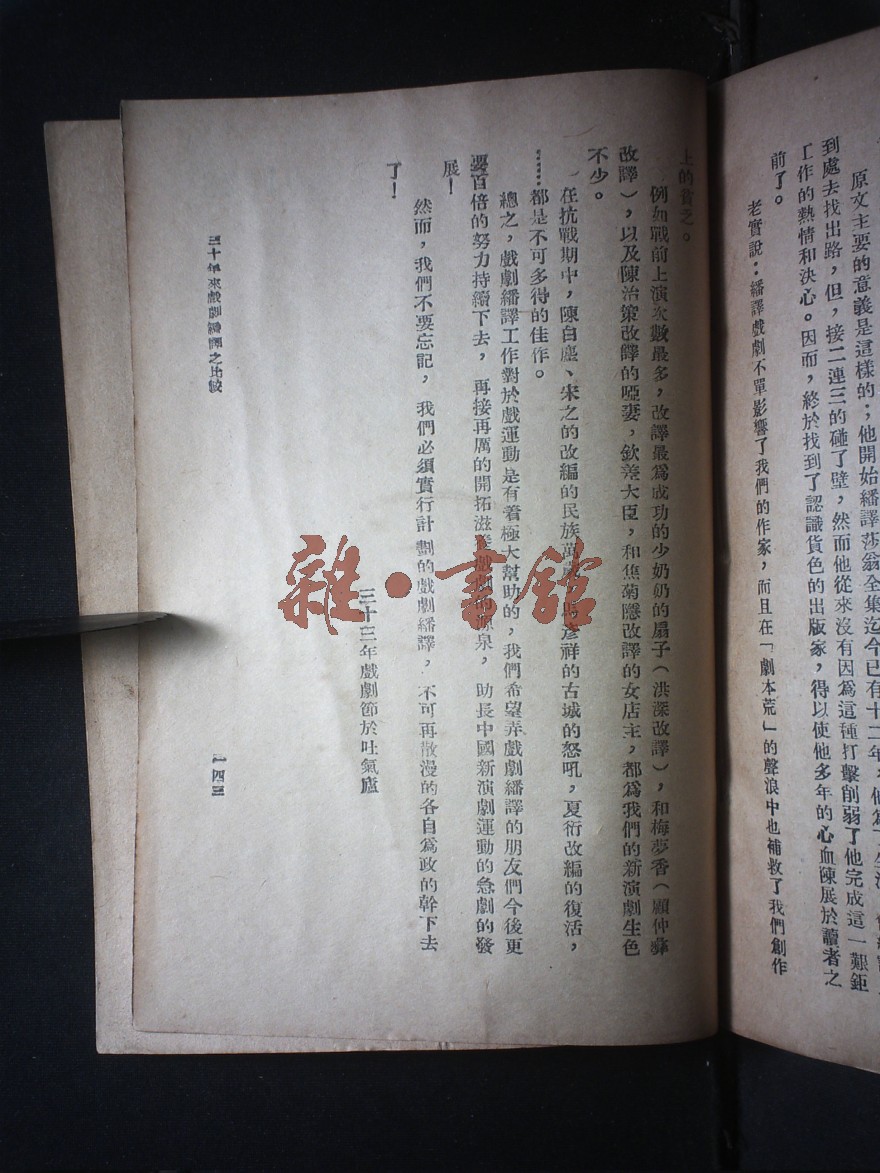 原文主要的意義是這樣的:他開始繙譯莎翁全集迄今已有十二年,他爲了
到處去找出路,但,接二連三的碰了壁,然而他從來沒有因爲這種打擊削弱了他完成這一艱鉅
工作的熱情和決心。因而,終於找到了認識貨色的出版家,得以使他多年的心血陳展於讀者之
前了。
老實說:繙譯戲劇不單影響了我們的作家,而且在「劇本荒」的聲浪中也補救了我們創作
上的貧乏。
例如戰前上演次數最多,改譯最爲成功的少奶奶的扇子(洪深改譯),和梅夢香(顧仲彝
改譯),以及陳治策改譯的啞妻,欽差大臣,和焦菊隱改譯的女店主,都爲我們的新演劇生色
不少。
在抗戰期中,陳白塵、宋之的改編的民族萬歲,馬彥祥的古城的怒吼,夏衍改編的復活,
……都是不可多得的佳作。
總之,戲劇繙譯工作對於戲運動是有着極大幫助的,我們希望弄戲劇繙譯的朋友們今後更
要百倍的努力持續下去,再接再厲的開拓滋養戲劇的源泉,助長中國新演劇運動的急劇的發
展!
然而,我們不要忘記,我們必須實行計劃的戲劇繙譯,不可再散漫的各自爲政的幹下去
了!
三十三年戲劇節於吐氣廬
三十年來戲劇繙譯之比較
一四三
雜·書館